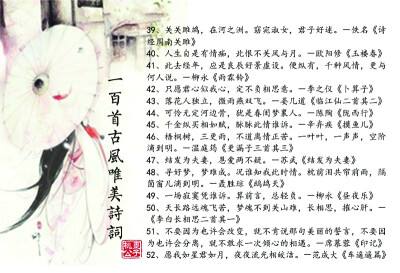 一百首古風唯美詩詞
39、关关雎鸠，在河之洲。窈窕淑女，君子好逑。—佚名《诗
经周南关雎》
40、人生自是有情痴，此恨不关风与月。—欧阳修《玉楼春》
41、此去经年，应是良辰好景虚设。便纵有，千种风情，更与
何人说。—柳永《雨霖铃》
42、只愿君心似我心，定不负相思意。—李之仪《卜算子》
43、落花人独立，微雨燕双飞。—晏几道《临江仙二首其二》
44、可怜无定河边骨，犹是春闺梦里人。—陈陶《陇西行》
45、千金纵买相如赋，脉脉此情谁诉。—辛弃疾《摸鱼儿》
46、梧桐树，三更雨，不道离情正苦。一叶叶，一声声，空阶
滴到明。—温庭筠《更漏子三首其三》
47、结发为夫妻，恩爱两不疑。—苏武《结发为夫妻》
48、寻好梦，梦难成。况谁知我此时情。枕前泪共帘前雨，隔
窗儿滴到明。—聂胜琼《鹧鸪天》
49、一场寂寞凭谁诉。算前言，总轻负。—柳永《昼夜乐》
50、天长路远魂飞苦，梦魂不到关山难，长相思，摧心肝。—
《李白长相思二首其一》
51、不要因为也许会改变，就不肯说那句美丽的誓言，不要因
为也许会分离，就不敢求一次倾心的相遇。—席慕蓉《印记》
52、愿我如星君如月，夜夜流光相皎洁。—范成大《车遥遥篇》